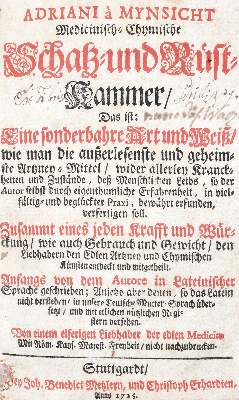 ADRIANI à MYNSICHT
Medicinisch-Chymische
Schatz-und Rüst-
Kammer/
Das ist:
Eine sonderbahre Art und Weiß/
wie man die außerlesenste und geheim-
ste Artzney-Mittel/ wider allerley Kranck-
heiten und Zustände, deß Menschlichen Leibs, so der
Autor selbst durch eigenthumliche Erfahrenheit, in viel-
fältig-und beglückter Praxi, bewährt erfunden,
verfertigen soll.
Zusammt eines jeden Krafft und Wür-
ckung/ wie auch Gebrauch und Gewicht/ den
Liebhabern der Edlen Artzney und Chymischen
Künsten entdeckt und mitgetheilt.
Anfangs von dem Autore in Lateinischer
Sprach geschrieben; Anjetzo aber denen, so das Latein
nicht verstehen/ in unsere Teutsche Mutter-Sprach über-
setzt/ und mit etlichen nützlichen Regi-
stern versehen.
Von einem eiferigen Liebhaber der edlen Medicin.
Mit Röm. Kays. Majest. Freyheit/ nicht nachzudrucken.
Stuttgardt/
Bey Joh. Benedict Metzlern, und Christoph Erhardten,
Anno 1725.